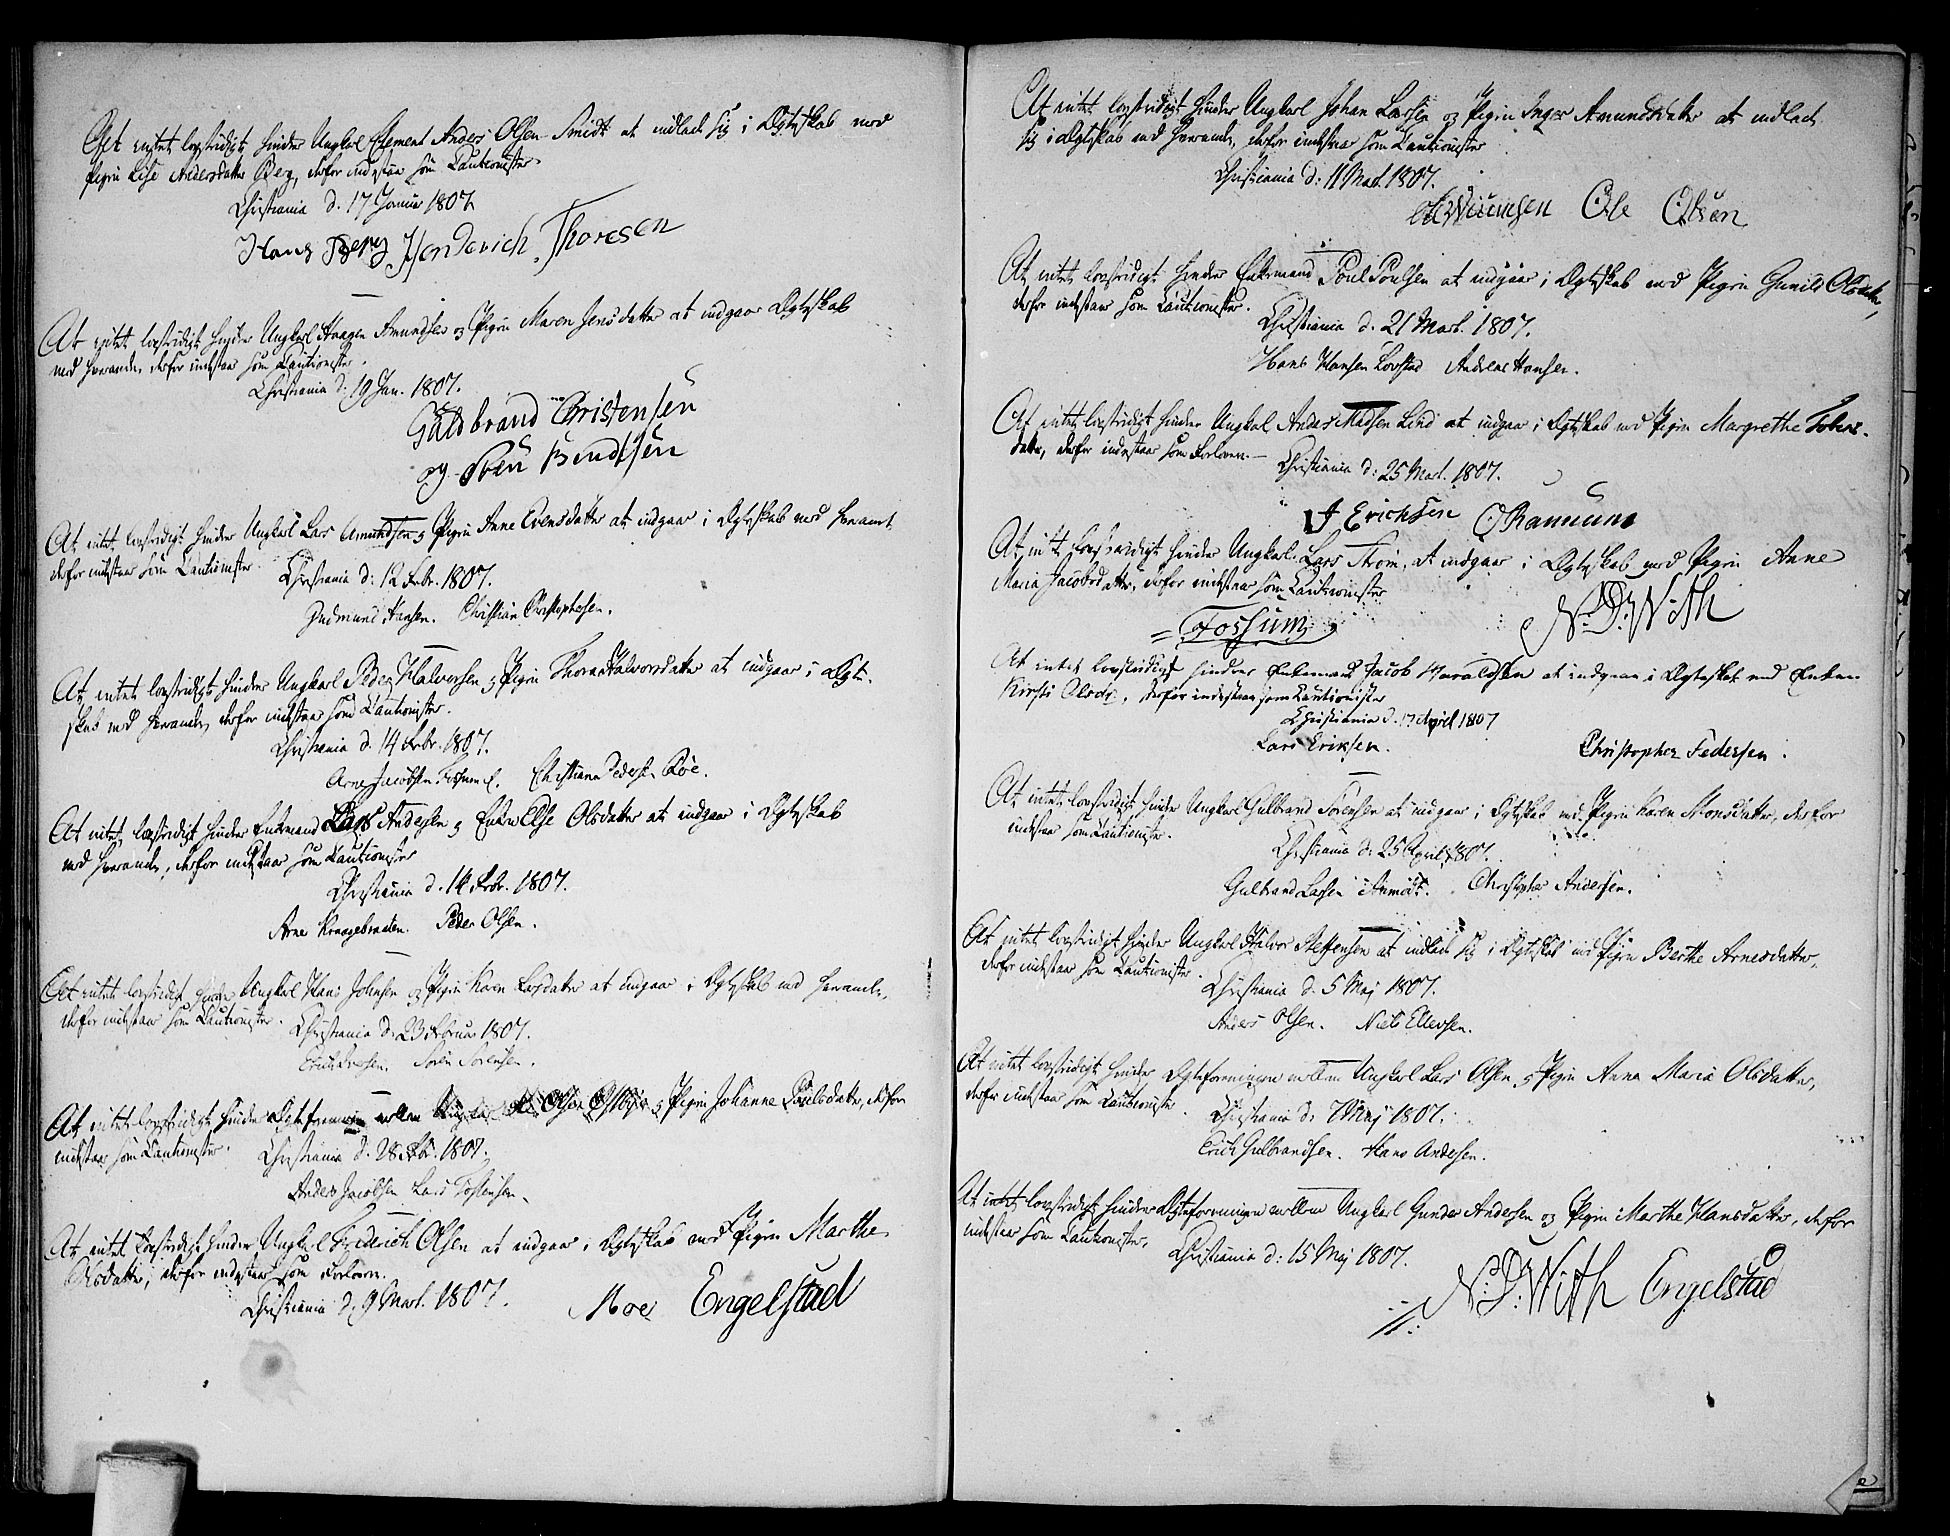 At intet lovstridigt hindrer Ungkarl Clement Anders Olsen Smidt at indlade sig i Ægteskab med
Pigen Lise Andersdatter Berg, derfor indestaar som Cautionister
Christiania d. 17 Januar 1807
Hans Berg Henderich Thoresen
At intet lovstridigt hindrer Ungkarl Haagen Amundsen og Pigen Maren Jensdatter at indgaae Ægteskab
med hverandre, derfor indestaar som Cautionister.
Christiania d. 19 Jan. 1807.
Guldbrand Christensen
og Sven Bendtsen
At intet lovstridigt hindrer Ungkarl Lars Amundsen og Pigen Anne Evensdatter at indgaae i Ægteskab med hverandr.
derfor indestaar som Cautionister.
Christiania d: 12 Febr. 1807.
Gudmund Hansen. Christian Christophersen.
At intet lovstridigt hindrer Ungkarl Peder Halvorsen og Pigen Thorea Halvorsdatter at indgaae i Ægte-
skab med hverandre, derfor indestaar som Cautionister.
Christiania d. 14 Febr. 1807.
Arne Jacobsen Fossum Christian Peders. Röe.
At intet lovstridigt hindrer Enkemand Lars Andersen og Enken Else Olsdatter at indgaae i Ægteskab
med hverandre, derfor indestaar som Cautionister
Christiania d. 14 Febr. 1807.
Arne Kraagebraaten. Peder Olsen.
At intet lovstridigt hindrer Ungkarl Hans Johnsen og Pigen Karen Larsdatter at indgaae i Ægteskab med hverandre,
derfor indestaar som Cautionister.
Christiania d. 23 Februar 1807.
Erich Sören Sörensen.
At intet lovstridigt hindrer Ægteforening mellem Ungkarl Ole Olsen og Pigen Johanne Poulsdatter, derfor
indestaar som Cautionister.
Christiania d. 28 Febr. 1807.
Anders Jacobsen Lars Tostensen.
At intet lovstridigt hindrer Ungkarl Friderich Olsen at indgaae i Ægteskab med Pigen Marthe
Olsdatter, derfor indestaar som Forlovere.
Christiania d. 9 Mart. 1807.
Moe Engelstad
At intet lovstridigt hindrer Ungkarl Johan Larsen og Pigen Inger Amundsdatter at indlade
sig i Ægteskab med hverandre, derfor indestaar som Cautionister
Christiania d: 11 Mart. 1807.
Ole Olsen
At intet lovstridigt hindrer Enkemand Poul Poulsen at indgaae i Ægteskab med Pigen Gunild Olsdatter,
derfor indestaar som Cautionister.
Christiania d. 21 Mart. 1807.
Hans Hansen Lovstad Andreas Hansen.
At intet lovstridigt hindrer Ungkarl Anders Madsen Lind at indgaae i Ægteskab med Pigen Margrethe Johns-
datter, derfor indestaar som Forlovere.
Christiania d: 25 Mart. 1807.
J Erichsen O Ramum
At intet lovstridigt hindrer Ungkarl Lars Ström, at indgaae i Ægteskab med Pigen Anne
Maria Jacobsdatter, derfor indestaar som Cautionister
Fossum N: D: With
At intet lovstridigt hindrer Enkemand Jacob Haraldsen at indgaae i Ægteskab med Enken
Kirsti Olsdr, derfor indestaar som Cautionister
Christiania d. 17 April 1807
Lars Eriksen. Christopher Pedersen.
At intet lovstridigt hindrer Ungkarl Gulbrand Sörensen at indgaae i Ægteskab med Pigen Karen Monsdatter, derfor
indestaar som Cautionister.
Christiania d. 25 April 1807.
Gulbrand Larsen Christopher Andersen.
At intet lovstridigt hindrer Ungkarl Halvor Steffensen at indlade sig i Ægteskab med Pigen Berthe Arnesdatter,
derfor indestaar som Cautionister.
Christiania d. 5 Maj 1807.
Anders Olsen. Niels Ellevsen.
At intet lovstridigt hindrer Ægteforeningen mellem Ungkarl Lars Olsen og Pigen Anna Maria Olsdatter,
derfor indestaar som Cautionister.
Christiania d. 7 Maj 1807.
Erich Gulbrandsen. Hans Andersen.
At intet lovstridigt hindrer Ægteforeningen mellem Ungkarl Gunder Andersen og Pigen Marthe Hansdatter, derfor
indestaar som Cautionister.
Christiania d: 15 Maj 1807.
N: D: With Engelstad